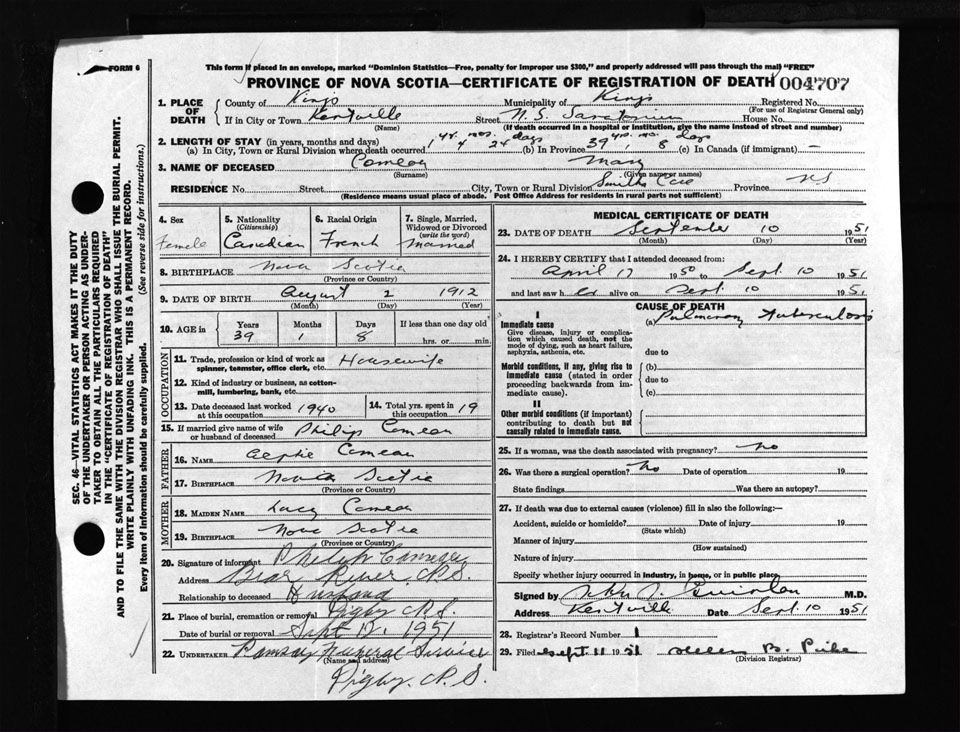 FORM 6
This form if placed in an envelope, marked "Dominion Statistics—Free, penalty for improper use $300," and properly addressed will pass through the mail "FREE"
PROVINCE OF NOVA SCOTIA—CERTIFICATE OF REGISTRATION OF DEATH 004707
SEC. 46—VITAL STATISTICS ACT MAKES IT THE DUTY
OF THE UNDERTAKER OR PERSON ACTING AS UNDER-
TAKER TO OBTAIN ALL THE PARTICULARS REQUIRED
IN THE "CERTIFICATE OF REGISTRATION OF DEATH"
AND TO FILE THE SAME WITH THE DIVISION REGISTRAR WHO SHALL ISSUE THE BURIAL PERMIT.
WRITE PLAINLY WITH UNFADING INK. THIS IS A PERMANENT RECORD.
Every item of Information should be carefully supplied. (See reverse side for instructions.)
1. PLACE OF DEATH County of Kings Municipality of Kings Registered No.
(For use of Registrar General only)
If in City or Town Kentville Street N.S. Sanatorium House No.
(Name) (If death occurred in a hospital or institution, give the name instead of street and number)
2. LENGTH OF STAY (in years, months and days)
(a) In City, Town or Rural Division where death occurred 1 yr. 4 mos. 24 days (b) In Province 39 yrs. 1 mo. 8 days (c) In Canada (if immigrant) —
3. NAME OF DECEASED Comeau Mary
(Surname) (Given name or names)
RESIDENCE No. Street City, Town or Rural Division Smiths Cove Province N.S
(Residence means usual place of abode. Post Office Address for residents in rural parts not sufficient)
4. Sex Female
5. Nationality (Citizenship) Canadian
6. Racial Origin French
7. Single, Married, Widowed or Divorced (write the word) Married
8. BIRTHPLACE Nova Scotia
(Province or Country)
9. DATE OF BIRTH August 2 1912
(Month) (Day) (Year)
10. AGE in Years 39 Months 1 Days 8 If less than one day old hrs. or min.
OCCUPATION
11. Trade, profession or kind of work as spinner, teamster, office clerk, etc. Housewife
12. Kind of industry or business, as cotton-mill, lumbering, bank, etc.
13. Date deceased last worked at this occupation 1940
14. Total yrs. spent in this occupation 19
15. If married give name of wife or husband of deceased Philip Comeau
FATHER
16. NAME Comeau
17. BIRTHPLACE Nova Scotia
(Province or Country)
MOTHER
18. MAIDEN NAME Lucy Comeau
19. BIRTHPLACE Nova Scotia
(Province or Country)
20. Signature of informant Philip Comeau
Address Bear River, N.S.
Relationship to deceased Husband
21. Place of burial, cremation or removal Digby N.S.
Date of burial or removal Sept 12. 1951
22. UNDERTAKER Ramsay Funeral Service
(Name and address)
Digby, N.S.
MEDICAL CERTIFICATE OF DEATH
23. DATE OF DEATH September 10 1951
(Month) (Day) (Year)
24. I HEREBY CERTIFY that I attended deceased from:
April 17 1950 to Sept. 10 1951
and last saw her alive on Sept. 10 1951
CAUSE OF DEATH
I
Immediate cause
Give disease, injury or complication which caused death, not the mode of dying, such as heart failure, asphyxia, asthenia, etc.
(a) Pulmonary Tuberculosis
due to
Morbid conditions, if any, giving rise to immediate cause (stated in order proceeding backwards from immediate cause)
(b)
due to
(c)
II
Other morbid conditions (if important) contributing to death but not causally related to immediate cause.
25. If a woman, was the death associated with pregnancy? no
26. Was there a surgical operation? No Date of operation 19
State findings Was there an autopsy?
27. If death was due to external causes (violence) fill in also the following:—
Accident, suicide or homicide? Date of injury 19
(State which)
Manner of injury
(How sustained)
Nature of injury
Specify whether injury occurred in industry, in home, or in public place
Signed by M.D.
Address Kentville Date Sept. 10 1951
28. Registrar's Record Number 1
29. Filed Sept. 11 1951 Helen B.
(Division Registrar)